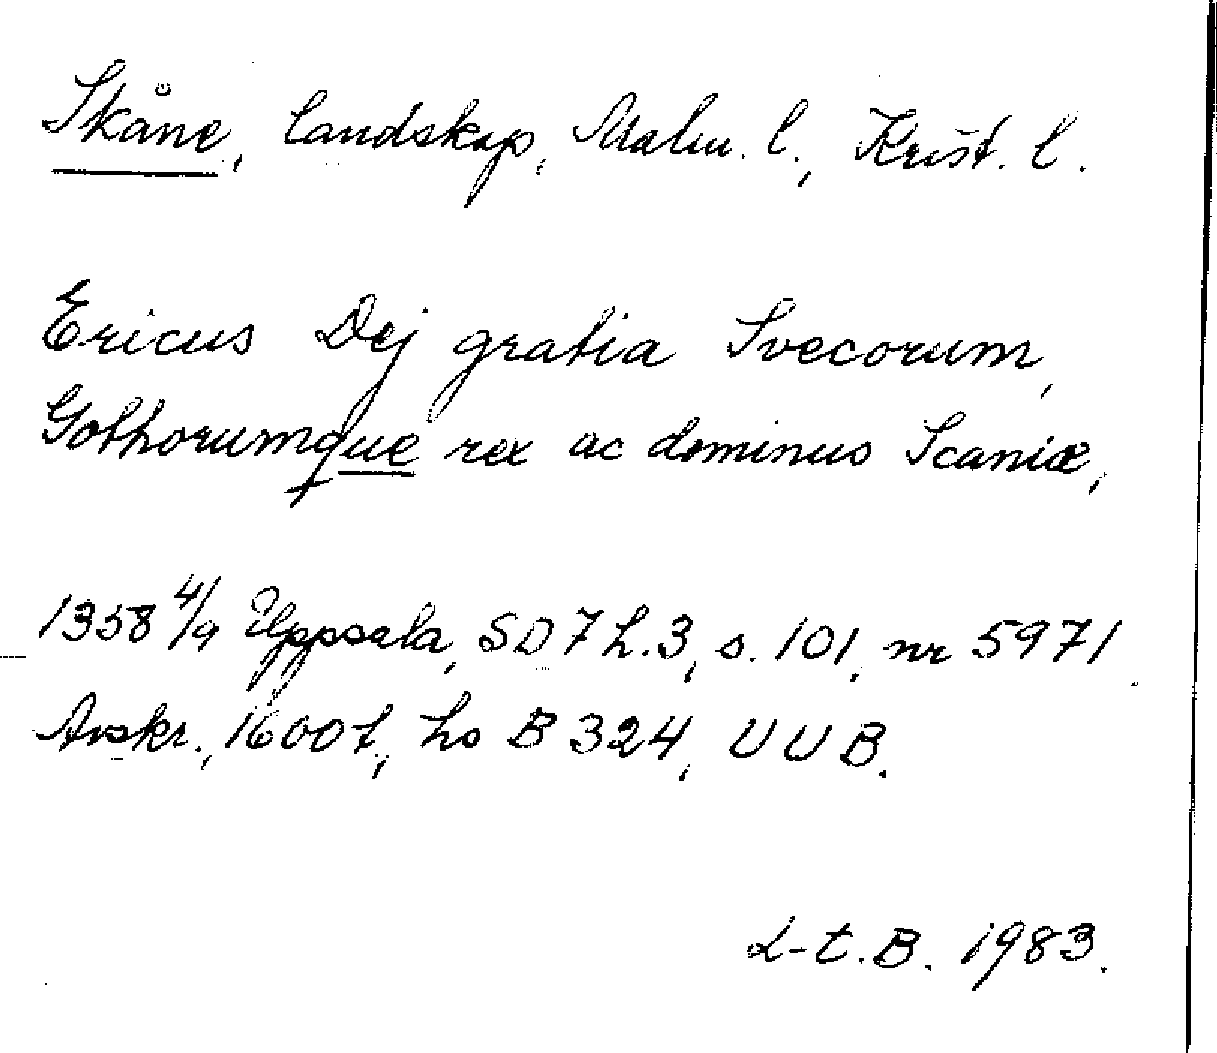 Skåne, landskap, Malm. l., Krist. l.
Ericus Dej gratia Svecorum,
Gothorumque rex ac dominus Scaniæ,
1358 4/9 Uppsala, SD 7 h. 3, s. 101, nr 5971.
Avskr., 1600 t, hs B 324, UUB.
L-t. B. 1983.